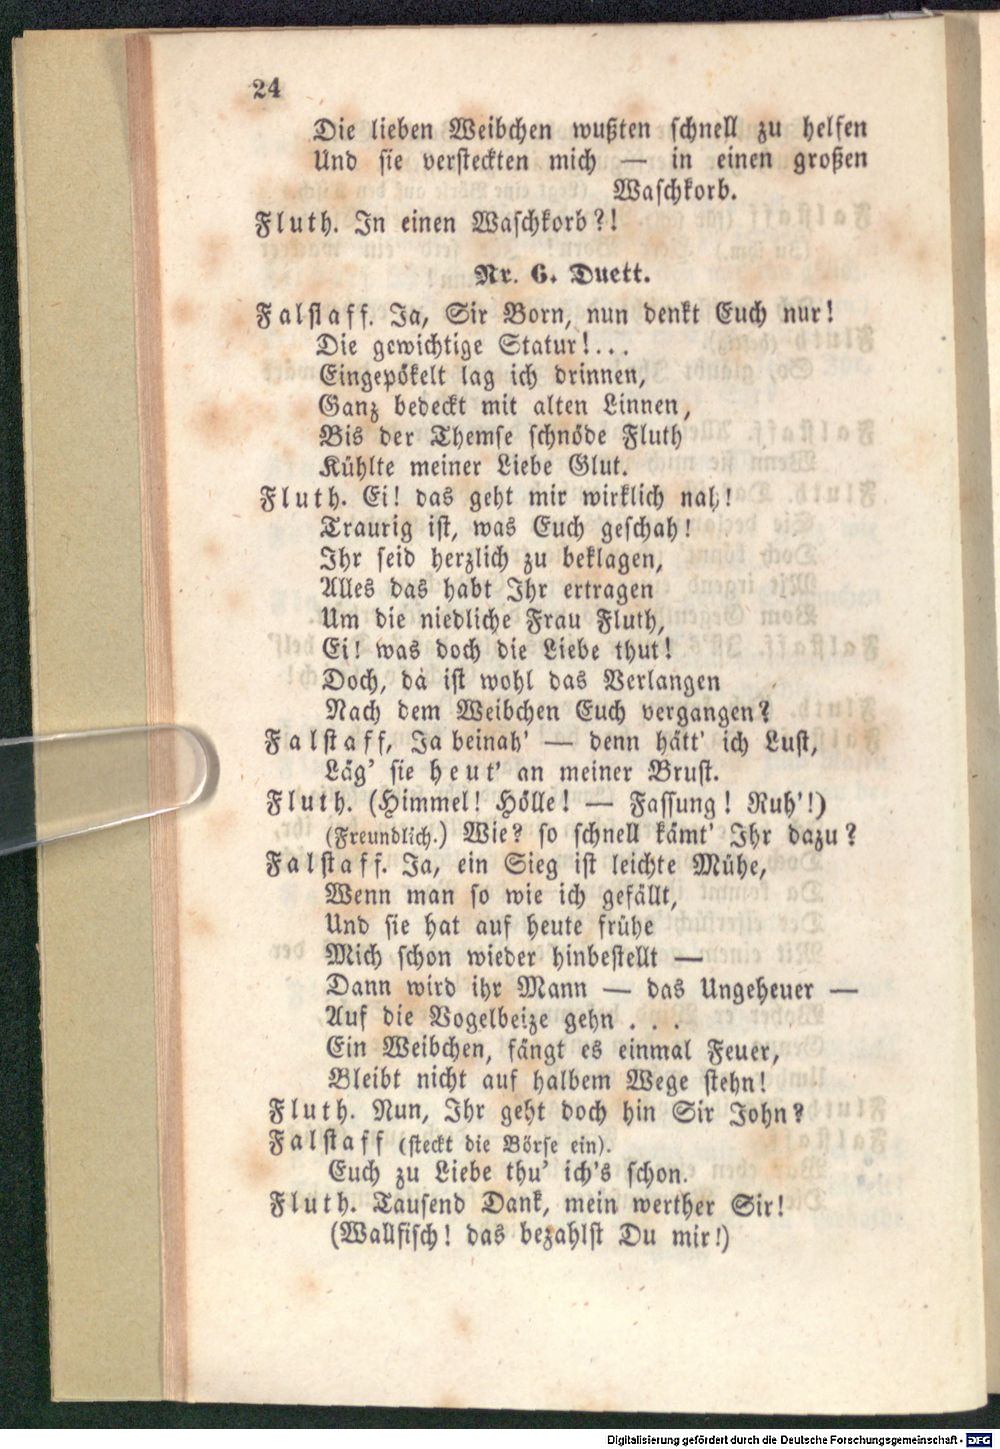 24
Die lieben Weibchen wußten schnell zu helfen
Und sie versteckten mich — in einen großen
Waschkorb.
Fluth. In einen Waschkorb?!
Nr. 6. Duett.
Falstaff. Ja, Sir Born, nun denkt Euch nur!
Die gewichtige Statur!...
Eingepökelt lag ich drinnen,
Ganz bedeckt mit alten Linnen,
Bis der Themse schnöde Fluth
Kühlte meiner Liebe Glut.
Fluth. Ei! das geht mir wirklich nah!
Traurig ist, was Euch geschah!
Ihr seid herzlich zu beklagen,
Alles das habt Ihr ertragen
Um die niedliche Frau Fluth,
Ei! was doch die Liebe thut!
Doch, da ist wohl das Verlangen
Nach dem Weibchen Euch vergangen?
Falstaff, Ja beinah' — denn hätt' ich Lust,
Läg' sie heut' an meiner Brust.
Fluth. (Himmel! Hölle! — Fassung! Ruh'!)
(Freundlich.) Wie? so schnell kämt' Ihr dazu?
Falstaff. Ja, ein Sieg ist leichte Mühe,
Wenn man so wie ich gefällt,
Und sie hat auf heute frühe
Mich schon wieder hinbestellt —
Dann wird ihr Mann — das Ungeheuer —
Auf die Vogelbeize gehn . . .
Ein Weibchen, fängt es einmal Feuer,
Bleibt nicht auf halbem Wege stehn!
Fluth. Nun, Ihr geht doch hin Sir John?
Falstaff (steckt die Börse ein).
Euch zu Liebe thu' ich's schon.
Fluth. Tausend Dank, mein werther Sir!
(Wallfisch! das bezahlst Du mir!)
Digitalisierung gefördert durch die Deutsche Forschungsgemeinschaft - DFG